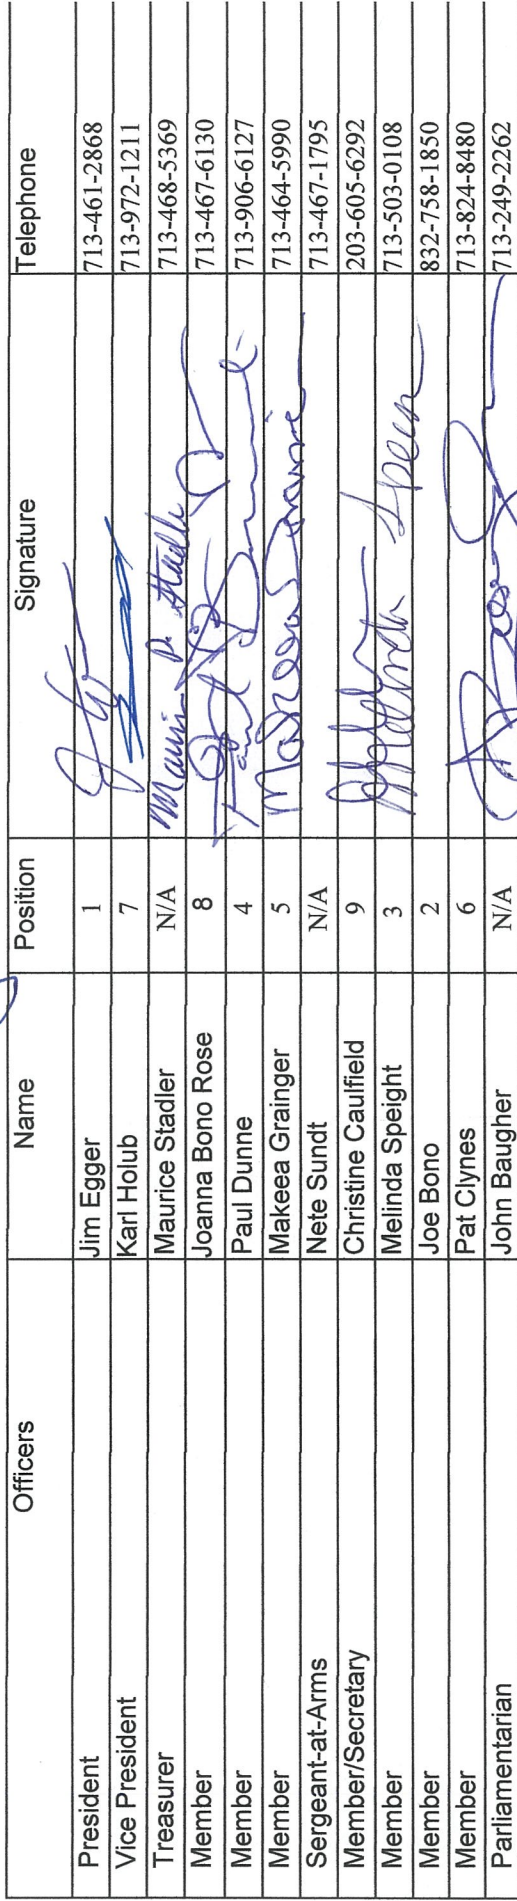 Officers Name Position Signature Telephone
President Jim Egger 1 713-461-2868
Vice President Karl Holub 7 713-972-1211
Treasurer Maurice Stadler N/A Maurice P. Stadler 713-468-5369
Member Joanna Bono Rose 8 713-467-6130
Member Paul Dunne 4 Paul Dunne 713-906-6127
Member Makeea Grainger 5 Makeea Grainger 713-464-5990
Sergeant-at-Arms Nete Sundt N/A 713-467-1795
Member/Secretary Christine Caulfield 9 203-605-6292
Member Melinda Speight 3 Melinda Speight 713-503-0108
Member Joe Bono 2 832-758-1850
Member Pat Clynes 6 713-824-8480
Parliamentarian John Baugher N/A 713-249-2262